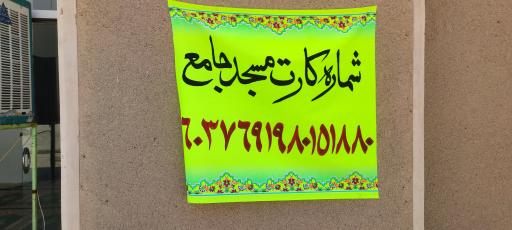 شماره کارت مسجد جامع
۶۰۳۷۶۹۱۹۸۰۱۵۱۸۸۰